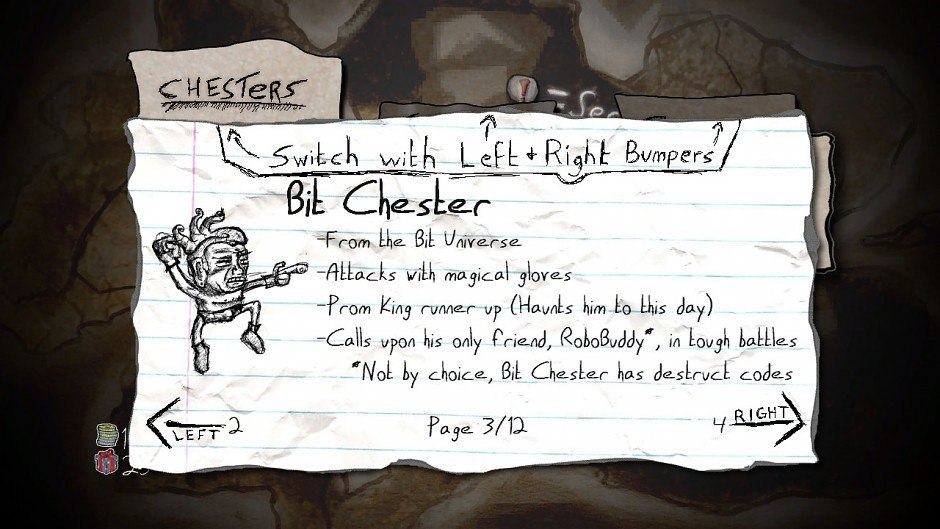 CHESTERS
Switch with Left + Right Bumpers
Bit Chester
-From the Bit Universe
-Attacks with magical gloves
-Prom King runner up (Haunts him to this day)
-Calls upon his only friend, RoboBuddy*, in tough battles
*Not by choice, Bit Chester has destruct codes
LEFT 2
Page 3/12
4 RIGHT